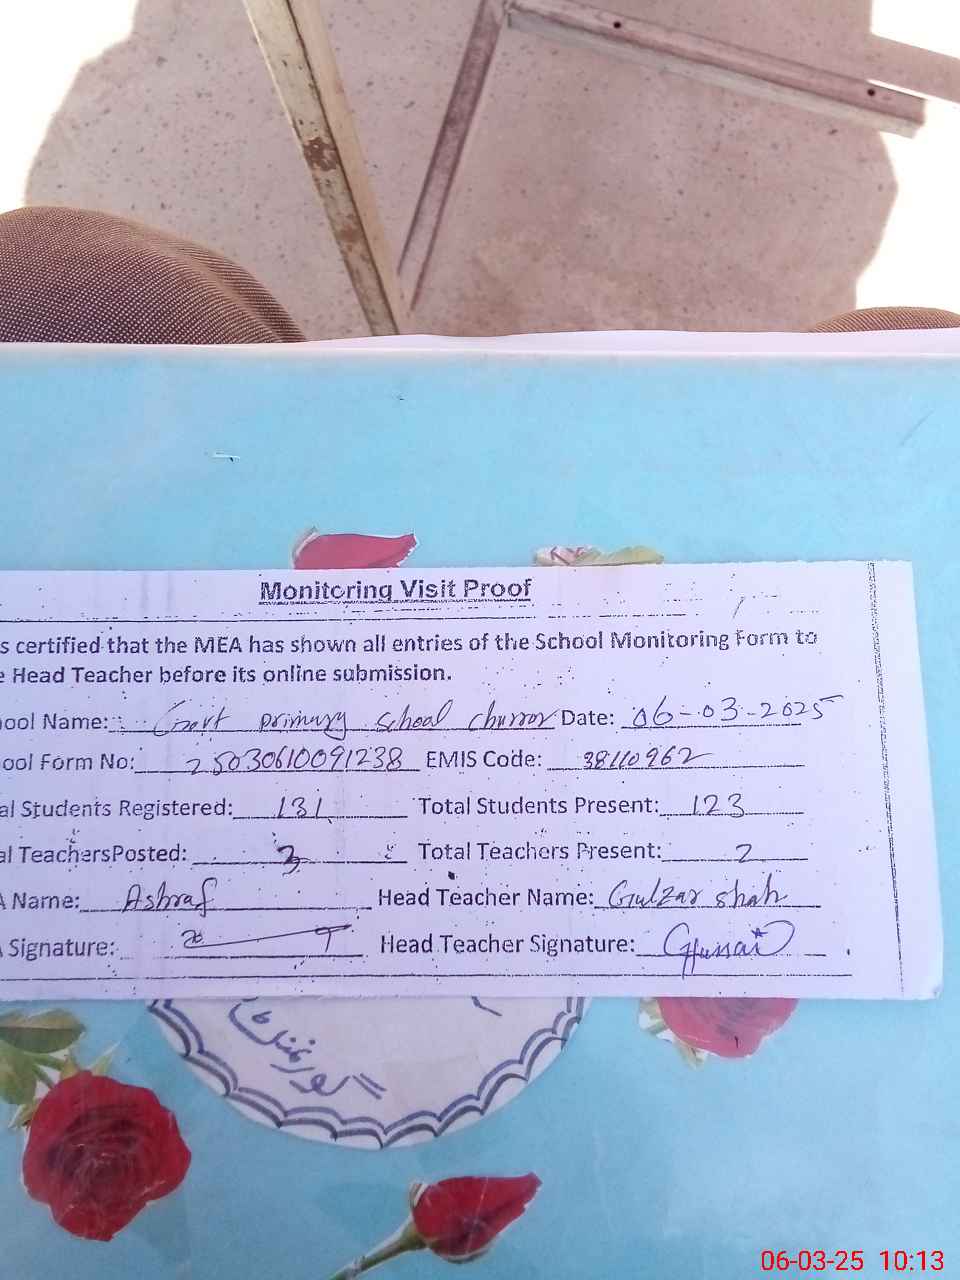 Monitoring Visit Proof
s certified that the MEA has shown all entries of the School Monitoring Form to
e Head Teacher before its online submission.
ool Name: Govt primary school churror Date: 06-03-2025
ool Form No: 25030610091238 EMIS Code: 38110962
al Students Registered: 131 Total Students Present: 123
al TeachersPosted: 3 Total Teachers Present: 2
A Name: Ashraf Head Teacher Name: Gulzar shah
A Signature: Head Teacher Signature:
گورنمنٹ
06-03-25 10:13